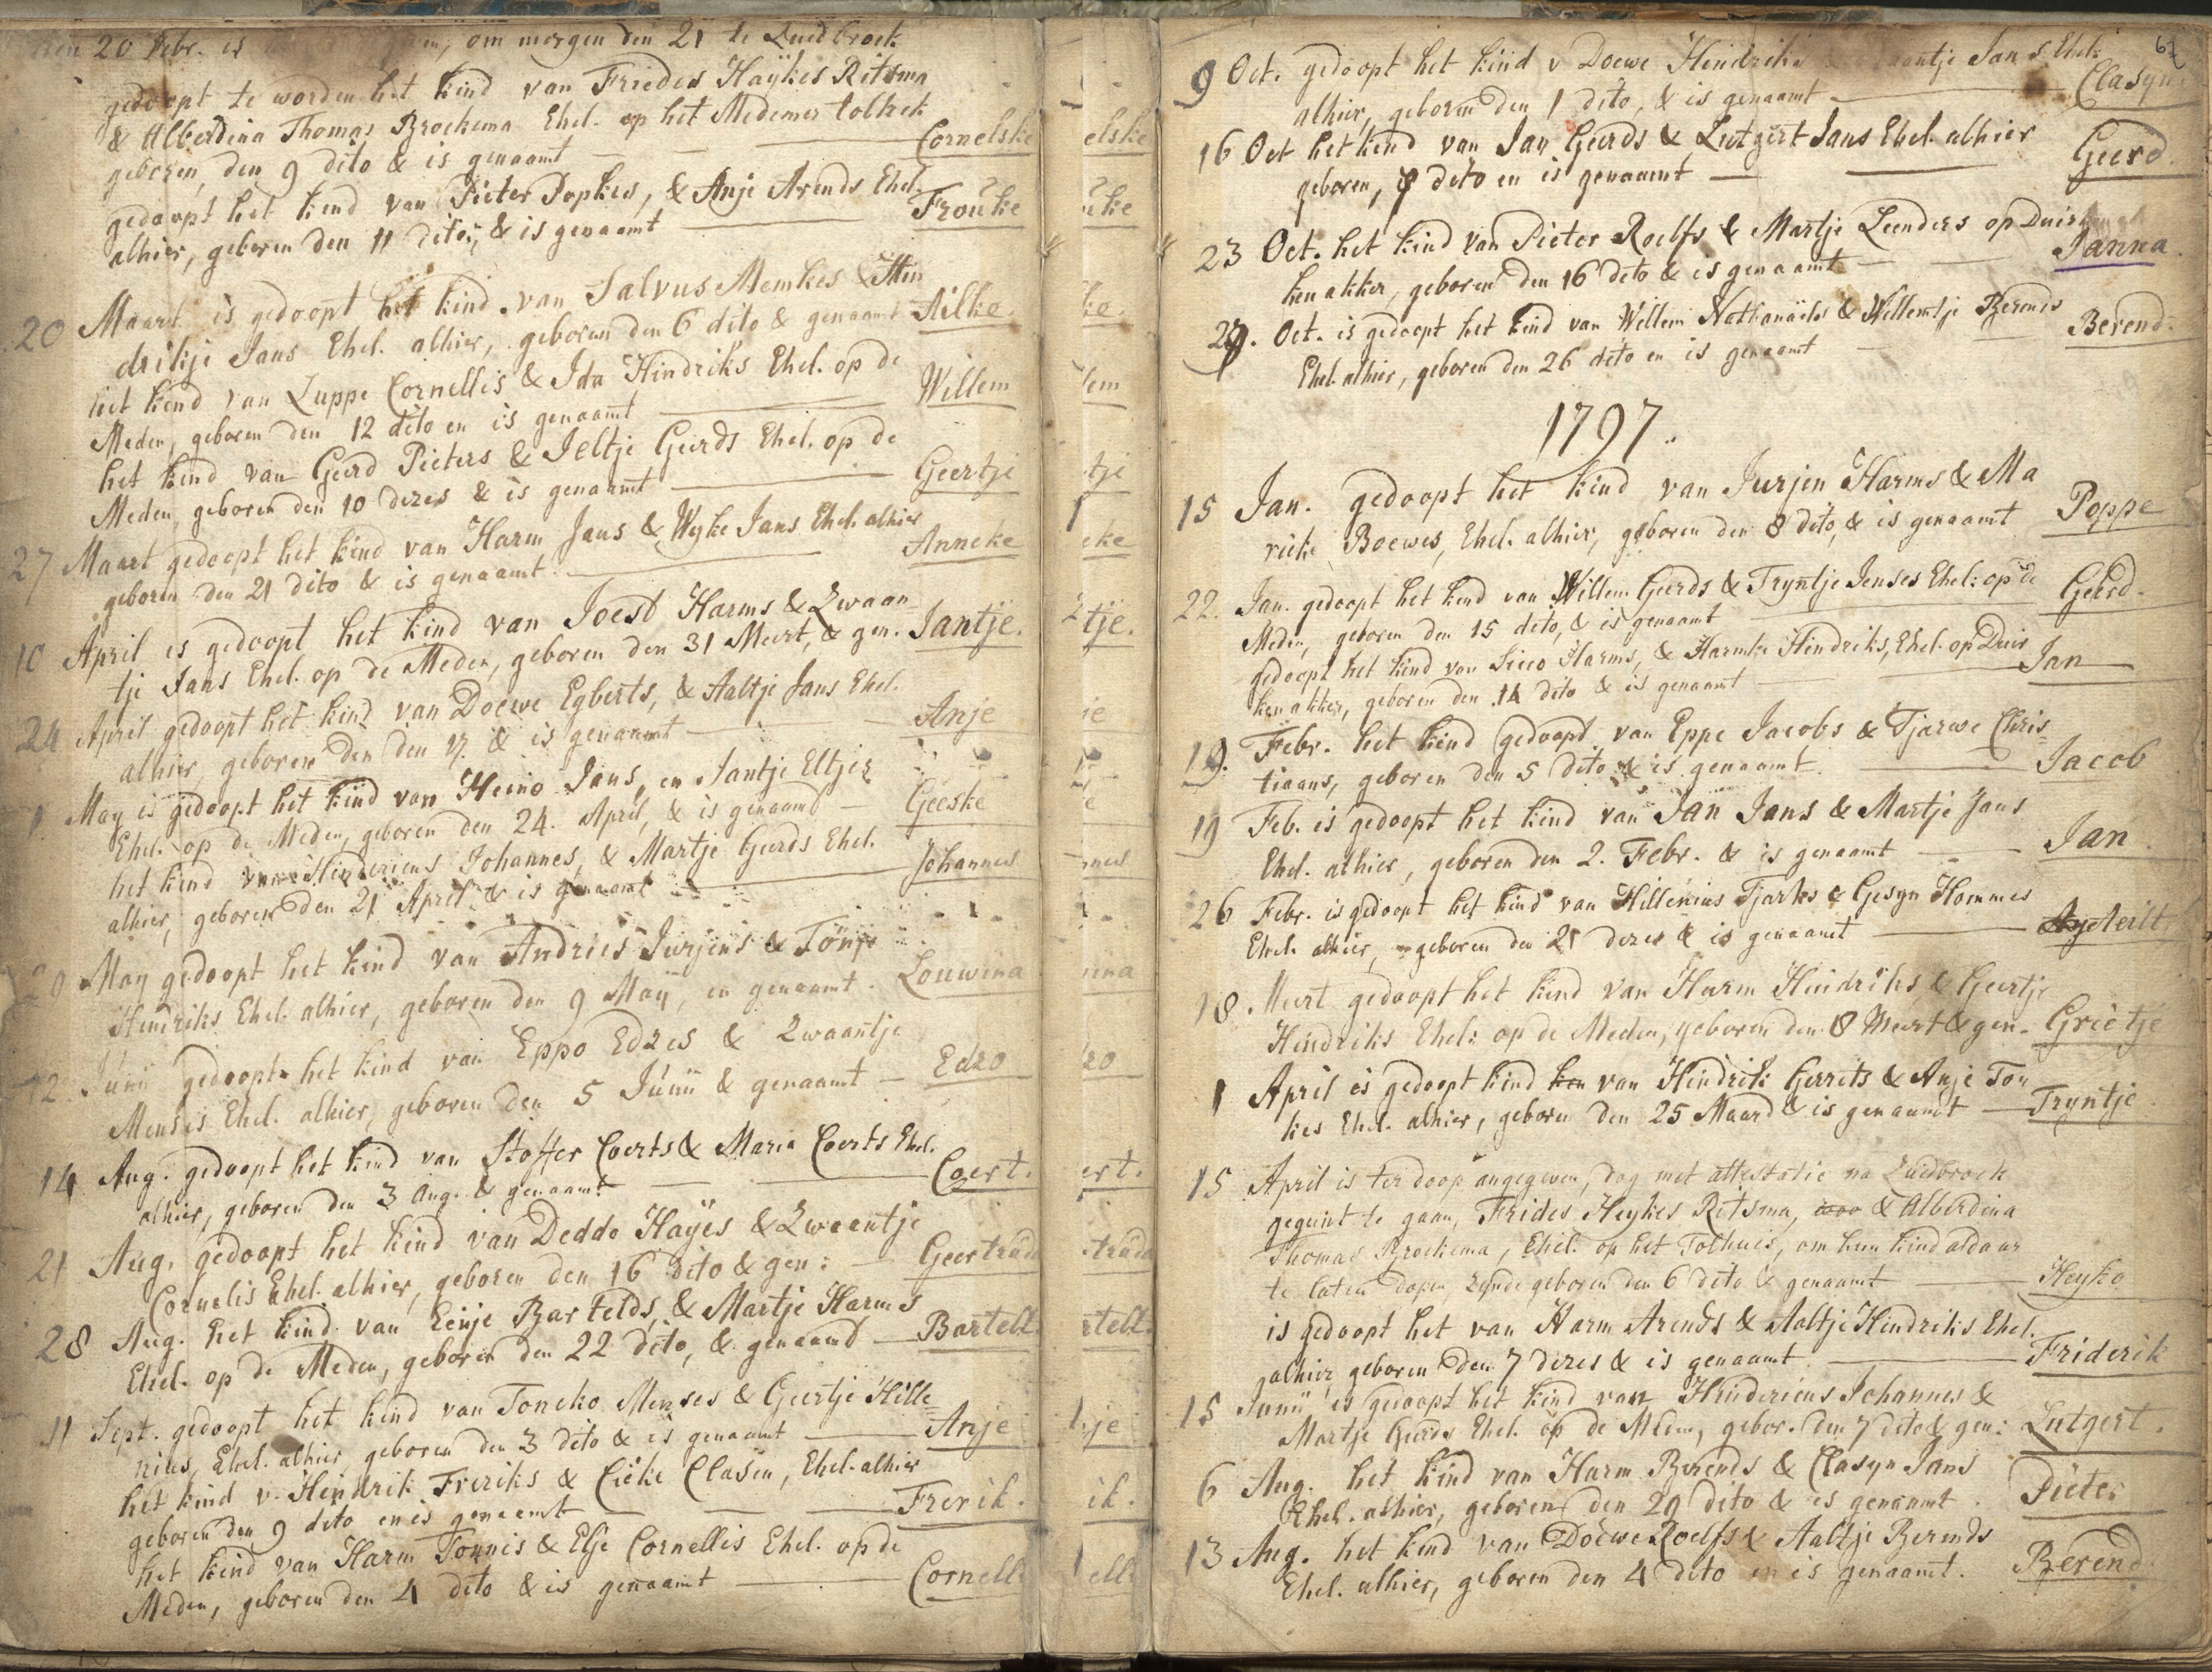 den 20 Febr. is om morgen den 21 te Zuidbroek
gedoopt te worden het kind van Friedes Haÿkes Ritsma
& Alberdina Thomas Broekema Ehel. op het Medemer tolhek
geboren, den 9 dito & is genaamt — Cornelske
gedoopt het kind van Pieter Popkes, & Anje Arends Ehel.
alhier, geboren den 11 dito, & is genaamt — Frouke
20 Maart is gedoopt het kind van Salvus Memkes & Hin
drikje Jans Ehel. alhier, geboren den 6 dito & genaamt Ailko.
het kind van Luppe Cornellis & Ida Hindriks Ehel. op de
Meden, geboren den 12 dito en is genaamt — Willem
het kind van Geerd Pieters & Jeltje Geerds Ehel. op de
Meden, geboren den 10 dezes & is genaamt — Geertje
27 Maart gedoopt het kind van Harm Jans & Wyke Jans Ehel. alhier
geboren den 21 dito & is genaamt — Anneke
10 April is gedoopt het kind van Joest Harms & Zwaan
tje Jans Ehel. op de Meden, geboren den 31 Meert, & gen. Jantje.
24 April gedoopt het kind van Doewe Egberts, & Aaltje Jans Ehel.
alhier, geboren den den 17. & is genaamt — Anje
1 May is gedoopt het kind van Heino Jans, en Jantje Eltjes
Ehel. op de Meden, geboren den 24. April, & is genaamt — Geeske
het kind van Hindericus Johannes, & Martje Geerds Ehel.
alhier, geboren den 21 April & is genaamt — Johannes
May gedoopt het kind van Andries Jurjens & Tönje
Hendriks Ehel. alhier, geboren den 9 Maÿ, en genaamt. Louwina
12. Junii gedoopt het kind van Eppo Edzes & Zwaantje
Menses Ehel. alhier, geboren den 5 Junii & genaamt — Edzo
14 Aug. gedoopt het kind van Stoffer Coerts & Maria Coerts Ehel.
alhier, geboren den 3 Aug. & genaamt — Coert.
21 Aug. gedoopt het kind van Deddo Haÿes & Zwaantje
Cornelis Ehel. alhier, geboren den 16 dito & gen: — Geertruda
28 Aug. het kind van Eenje Bartelds, & Martje Harms
Ehel. op de Meden, geboren den 22 dito, & genaamt — Bartelt.
11 Sept. gedoopt het kind van Toncko Menses & Geertje Hille
nius, Ehel. alhier, geboren den 3 dito & is genaamt — Anje
het kind v. Hendrik Freriks & Cieke Clasen, Ehel. alhier
geboren den 9 dito en is genaamt — Frerik.
het kind van Harm Tonnis & Elsje Cornellis Ehel. op de
Meden, geboren den 4 dito & is genaamt — Cornell
elske
uke
ko.
lem
tje
eke
tje.
je
e
nnes
ina
zo
ert.
truda
rtelt.
je
ik.
ell
67
9 Oct. gedoopt het kind v Doewe Hindriks aantje Jans Ehel:
alhier, geboren den 1 dito, & is genaamt — Clasyn
16 Oct het kind van Jan Geerds & Lutgert Jans Ehel. alhier
geboren, 9 dito en is genaamt — Geerd.
23 Oct. het kind van Pieter Roelfs & Martje Leenders op Duir
ken akker, geboren den 16 dito & is genaamt — Janna.
29. Oct. is gedoopt het kind van Willem Nathanäels & Willemtje Berends
Ehel. alhier, geboren den 26 dito en is genaamt — Berend.
1797.
15 Jan. gedoopt het kind van Jurjen Harms & Ma
rieke Boewes, Ehel. alhier, geboren den 8 dito, & is genaamt Poppe
22. Jan. gedoopt het kind van Willem Geerds & Tryntje Jenses Ehel: op de
Meden, geboren den 15 dito, & is genaamt — Geerd.
gedoopt het kind van Sicco Harms, & Harmke Hindriks, Ehel. op Duir
ken akker, geboren den 14 dito & is genaamt — Jan
12. Febr. het kind gedoopt van Eppe Jacobs & Tjarwe Chris
tiaans, geboren den 5 dito & is genaamt. — Jacob
19 Feb. is gedoopt het kind van Jan Jans & Martje Jans
Ehel. alhier, geboren den 2. Febr. & is genaamt — Jan.
26 Febr. is gedoopt het kind van Hillenius Tjarks & Gesyn Hommes
Ehel. alhier, geboren den 21 dezes & is genaamt — Aeilt
18. Meert gedoopt het kind van Harm Hindriks, & Geertje
Hindriks Ehel: op de Meden, geboren den 8 Meert & gen. Grietje
1 April is gedoopt kind ken van Hindrik Gerrits & Anje Ton
kes Ehel. alhier, geboren den 25 Maard & is genaamt — Tryntje.
15 April is ter doop angegeven, dog met attestatie na Zuidbroek
gegunt te gaan, Frides Heykes Ritsma, & Alberdina
Thomas Broekema, Ehel. op het Tolhuis, om hun kind aldaar
te laten dopen, zynde geboren den 6 dito & genaamt — Heyko
is gedoopt het van Harm Arends & Aaltje Hindriks Ehel.
alhier geboren den 7 dezes & is genaamt — Friderik
15 Junii is gedoopt het kind van Hindericus Johannes &
Martje Geerds Ehel. op de Meden, gebor. den 7 dito & gen: Lutgert.
6 Aug. het kind van Harm Berends & Clasyn Jans
Ehel. alhier, geboren den 29 dito & is genaamt. Pieter
13 Aug. het kind van Doewe Roelfs & Aaltje Berends
Ehel. alhier, geboren den 4 dito en is genaamt. Berend.